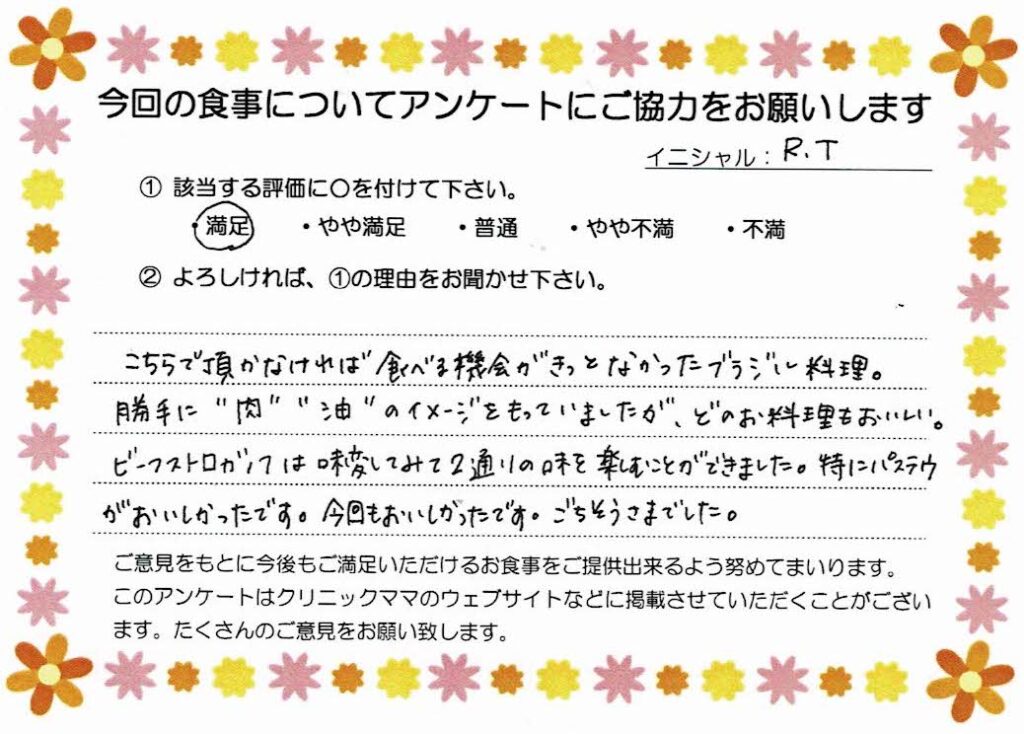 今回の食事についてアンケートにご協力をお願いします
イニシャル：R.T
① 該当する評価に〇を付けて下さい。
・満足 ・やや満足 ・普通 ・やや不満 ・不満
② よろしければ、①の理由をお聞かせ下さい。
こちらで頂かなければ食べる機会がきっとなかったブラジル料理。
勝手に"肉" "油"のイメージをもっていましたが、どのお料理もおいしい。
ビーフストロガノフは味変してみて2通りの味を楽しむことができました。特にパステウ
がおいしかったです。今回もおいしかったです。ごちそうさまでした。
ご意見をもとに今後もご満足いただけるお食事をご提供出来るよう努めてまいります。
このアンケートはクリニックママのウェブサイトなどに掲載させていただくことがござい
ます。たくさんのご意見をお願い致します。